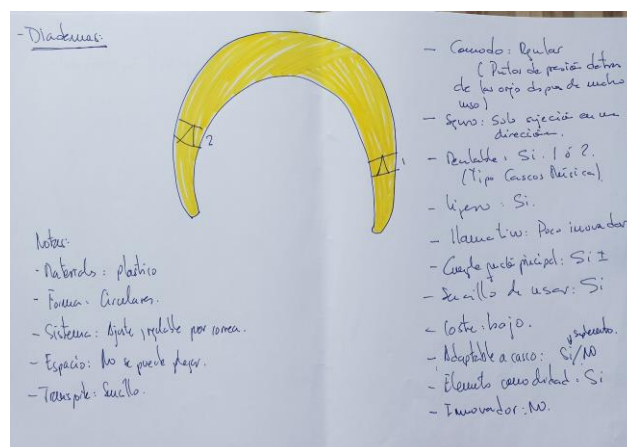 - Diademas:
2
1
Notas:
- Materiales: plastico
- Forma: Circulares.
- Sistema: Ajuste regulable por correa.
- Espacio: No se puede plegar.
- Transporte: Sencillo.
- Comodo: Regular
(Puntos de presión detras
de las orejas despues de mucho
uso)
- Seguro: Solo sujeción en una
dirección.
- Regulable: Si. 1 ó 2.
(Tipo Cascos Música)
- Ligero: Si.
- Llamativo: Poco innovador
- Cumple función principal: Si ±
- Sencillo de usar: Si
- Coste: bajo.
- Adaptable a casco: Si/NO
- Elemento comodidad: Si
- Innovador: NO.